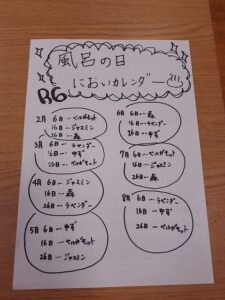 風呂の日
においカレンダー
R6
2月 6日…ベルガモット
16日…ジャスミン
26日…森
3月 6日…ラベンダー
16日…ゆず
26日…ベルガモット
4月 6日…ジャスミン
16日…森
26日…ラベンダー
5月 6日…ゆず
16日…ベルガモット
26日…ジャスミン
6月 6日…森
16日…ラベンダー
26日…ゆず
7月 6日…ベルガモット
16日…ジャスミン
26日…森
8月 6日…ラベンダー
16日…ゆず
26日…ベルガモット